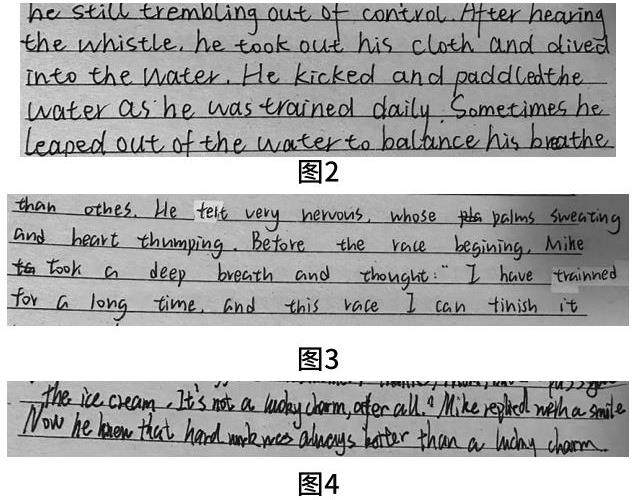 he still trembling out of control. After hearing
the whistle, he took out his cloth and dived
into the water. He kicked and paddledthe
water as he was trained daily. Sometimes he
leaped out of the water to balance his breathe
图2
than othes. He felt very nervous, whose palms sweating
and heart thumping. Before the race begining, Mike
took a deep breath and thought: " I have trainned
for a long time, and this race I can finish it
图3
the ice cream. It's not a lucky charm, after all." Mike replied with a smile
Now he knew that hard work was always better than a lucky charm.
图4